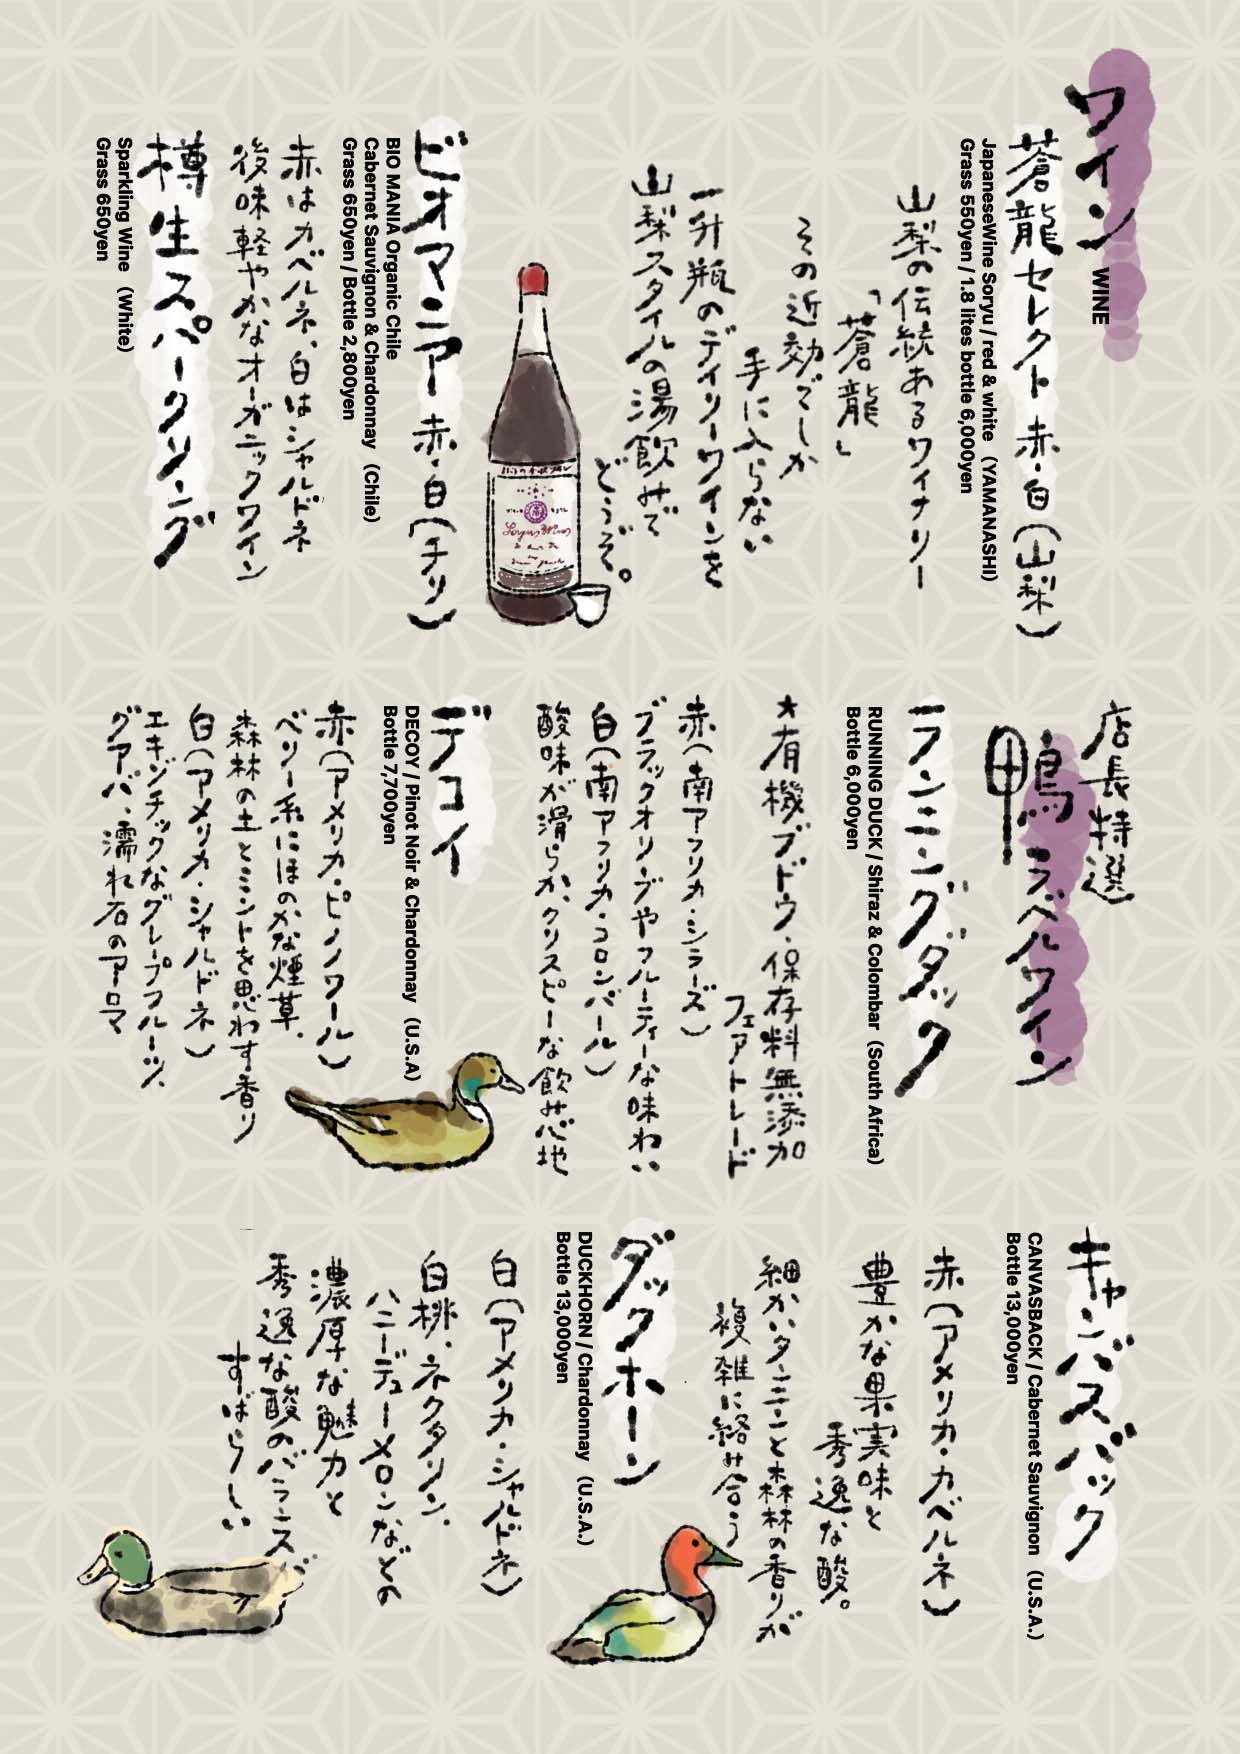 ワイン
WINE
蒼龍セレクト 赤・白(山梨)
JapaneseWine Soryu / red & white (YAMANASHI)
Grass 550yen / 1.8 lites bottle 6,000yen
山梨の伝統あるワイナリー
「蒼龍」
その近効でしか
手に入らない
一升瓶のデイリーワインを
山梨スタイルの湯飲みで
どうぞ。
ビオマニア 赤・白(チリ)
BIO MANIA Organic Chile
Cabernet Sauvignon & Chardonnay (Chile)
Grass 650yen / Bottle 2,800yen
赤はカベルネ、白はシャルドネ
後味軽やかなオーガニックワイン
樽生スパークリング
Sparkling Wine (White)
Grass 650yen
店長特選
鴨ラベルワイン
ランニングダック
RUNNING DUCK / Shiraz & Colombar (South Africa)
Bottle 6,000yen
*有機ブドウ、保存料無添加
フェアトレード
赤(南アフリカ・シラーズ)
ブラックオリーブやフルーティーな味わい
白(南アフリカ・コロンバール)
酸味が滑らか、クリスピーな飲み心地
デコイ
DECOY / Pinot Noir & Chardonnay (U.S.A)
Bottle 7,700yen
赤(アメリカ・ピノノワール)
ベリー系にほのかな煙草、
森林の土とミントを思わす香り
白(アメリカ・シャルドネ)
エキゾチックなグレープフルーツ、
グアバ、濡れ石のアロマ
キャンバスバック
CANVASBACK / Cabernet Sauvignon (U.S.A.)
Bottle 13,000yen
赤(アメリカ・カベルネ)
豊かな果実味と
秀逸な酸。
細かいタンニンと森林の香りが
複雑に絡み合う
ダックホーン
DUCKHORN / Chardonnay (U.S.A.)
Bottle 13,000yen
白(アメリカ・シャルドネ)
白桃、ネクタリン、
ハニーデューメロンなどの
濃厚な魅力と
秀逸な酸のバランスが
すばらしい